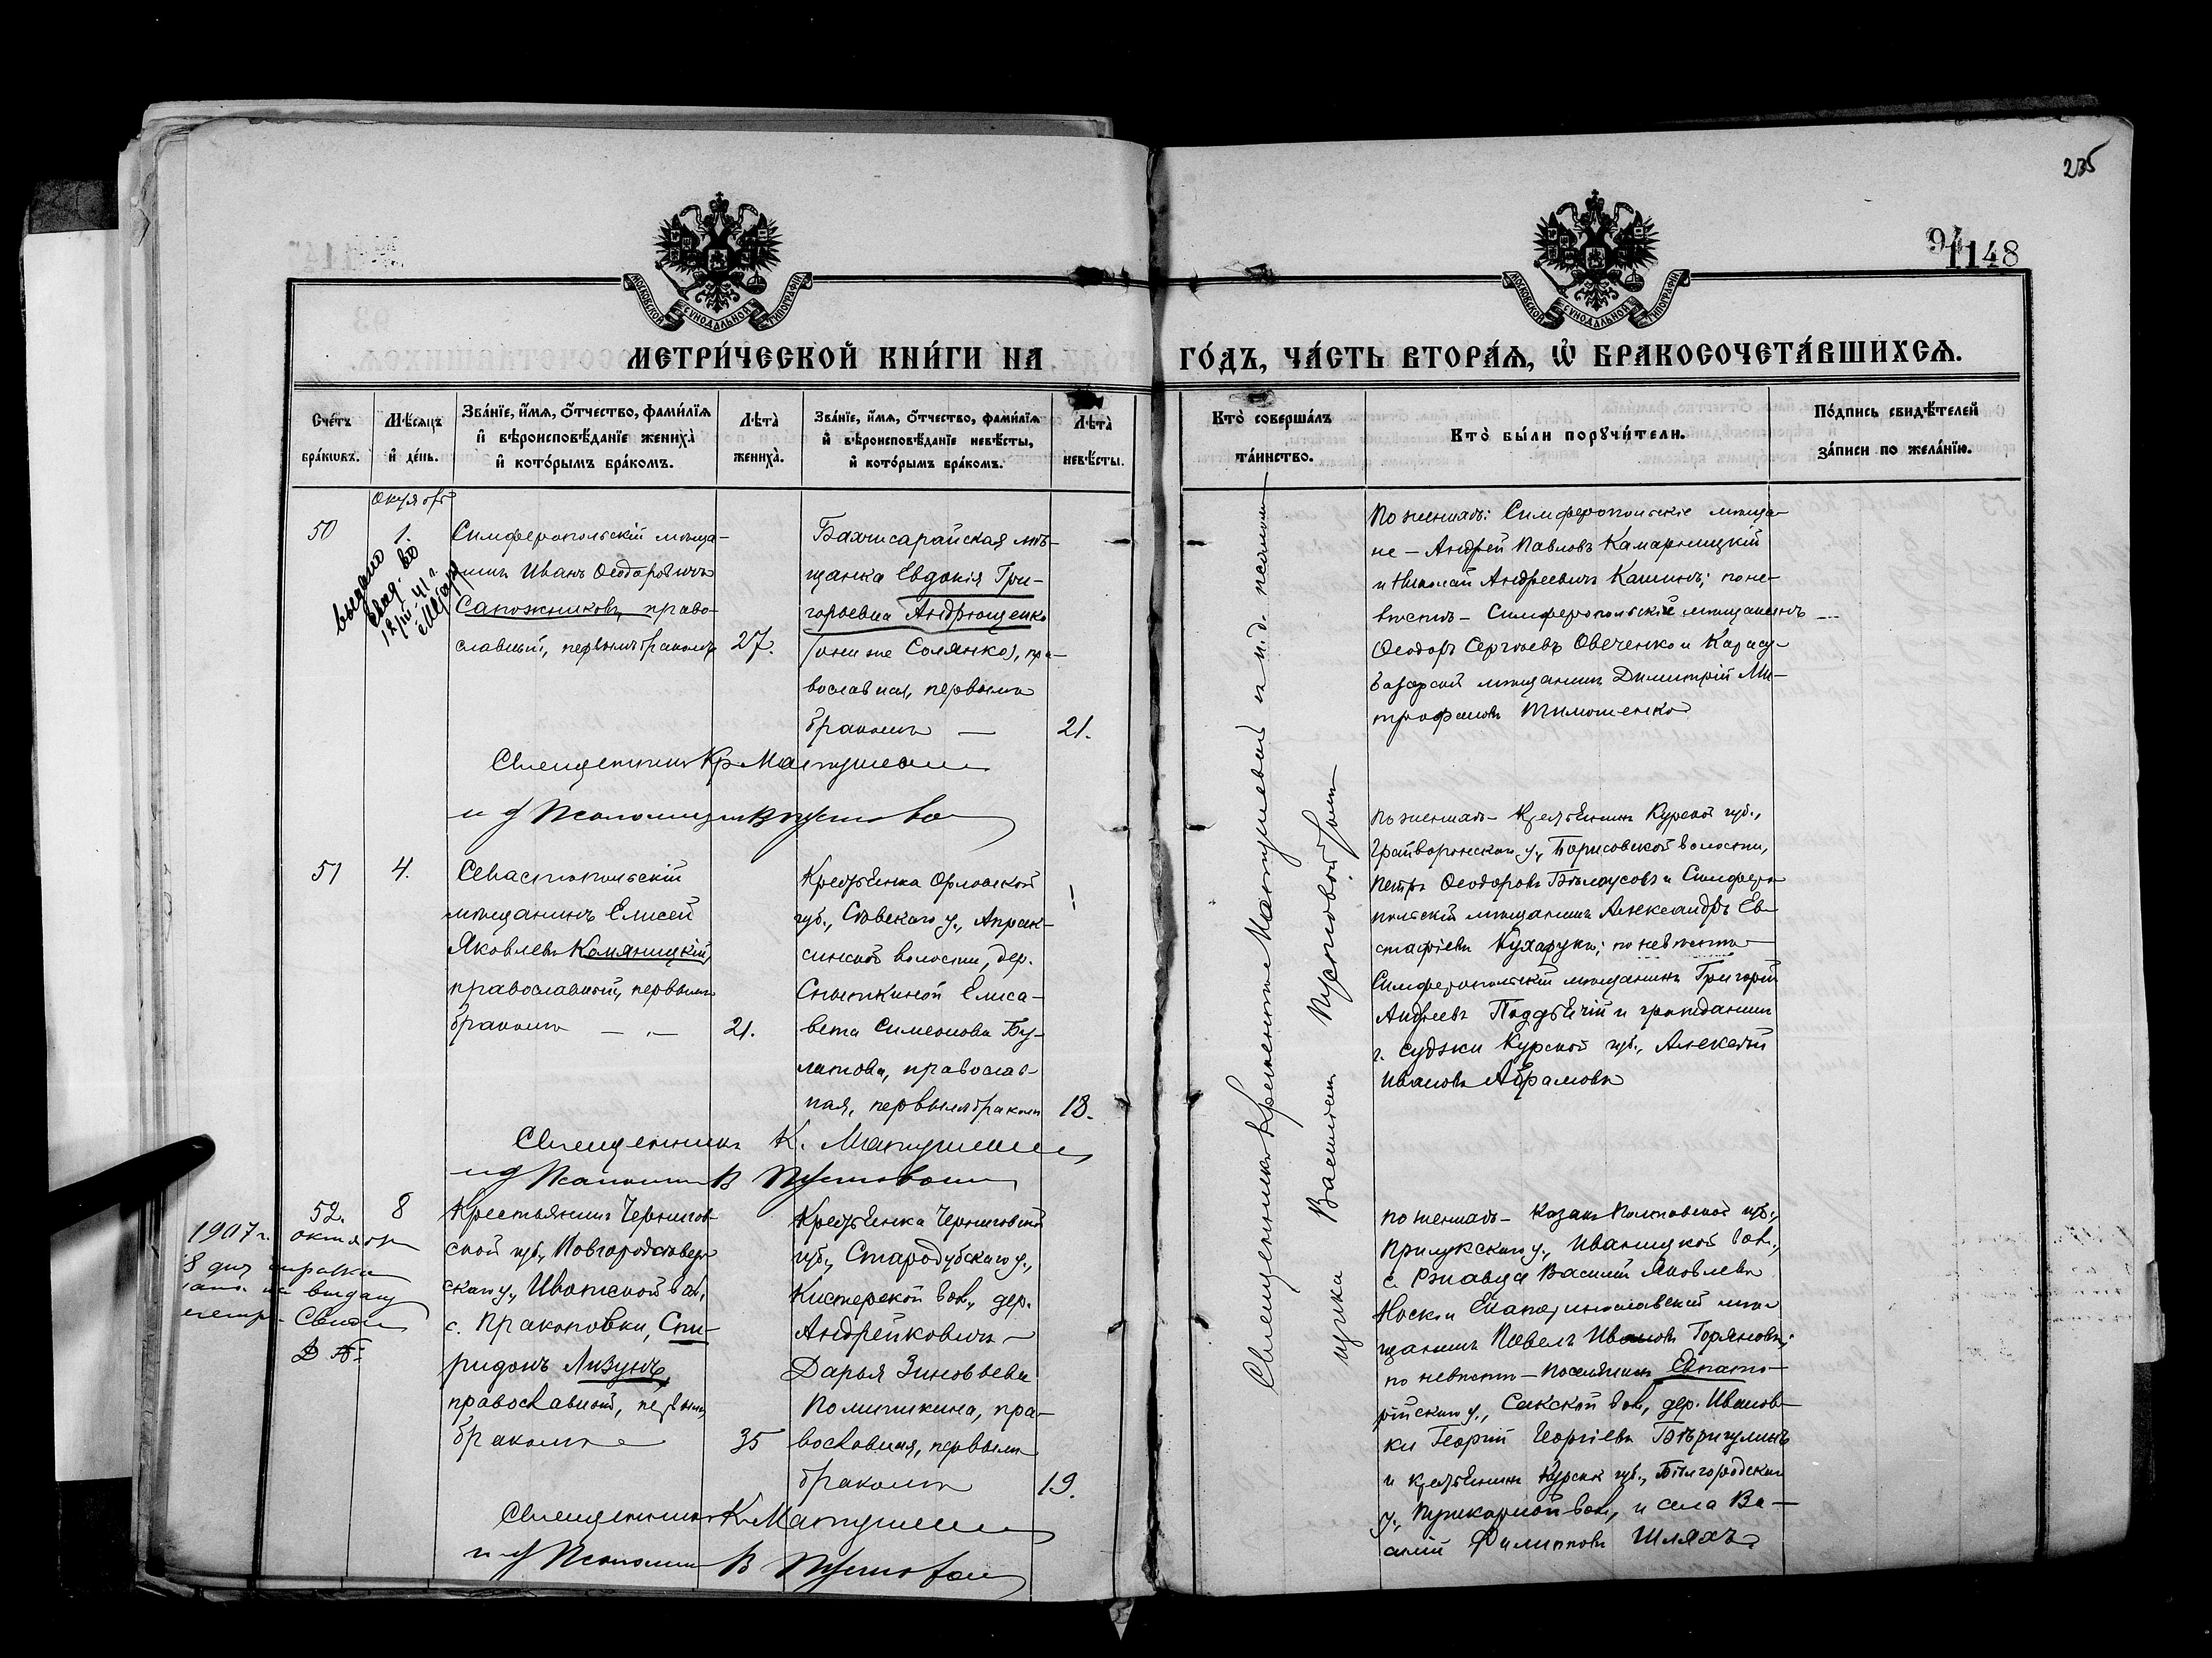 235
94
1148
МОСКОВСКОЙ СѴНОДАЛЬНОЙ ТИПОГРАФІИ
МОСКОВСКОЙ СѴНОДАЛЬНОЙ ТИПОГРАФІИ
МЕТРИ́ЧЕСКОЙ КНИ́ГИ НА ГО́ДЪ, ЧА́СТЬ ВТОРА́Я, Ѡ҆ БРАКОСОЧЕТА́ВШИХСѦ.
Сче́тъ бра́кѡвъ.
Мѣ́сяцъ и҆ де́нь.
Зва́нїе, и҆́мя, ѻ҆́тчество, фами́лїя и҆ вѣроисповѣ́данїе жениха̀ и҆ кото́рымъ бра́комъ.
Лѣта̀ жениха̀.
Зва́нїе, и҆́мя, ѻ҆́тчество, фами́лїя и҆ вѣроисповѣ́данїе невѣ́сты, и҆ кото́рымъ бра́комъ.
Лѣта̀ невѣ́сты.
Кто̀ соверша́лъ та́инство.
Кто̀ бы́ли порꙋчи́тели.
По́дпись свидѣ́телей за́писи по жела́нїю.
Октябрь
50
1.
выдано
12/III 41 г.
Симферопольскій мѣща-
нинъ Иванъ Ѳеодоровичъ
Сапожниковъ, право-
славный, первымъ бракомъ
27.
Бахчисарайская мѣ-
щанка Евдокія Гри-
горьевна Андрющенко
(она же Солянко), пра-
вославная, первымъ
бракомъ —
21.
Священникъ Кр. Матушевъ
и д Псаломщика В Пустово
По женихѣ: Симферопольскіе мѣща-
не — Андрей Павловъ Камарницкій
и Николай Андреевичъ Кашинъ; по не-
вѣстѣ — Симферопольскіе мѣщанинъ
Ѳеодоръ Сергѣевъ Овеченко и Карасу-
базарскій мѣщанинъ Димитрій Ми-
трофановъ Тимошенко
51
4.
Севастопольскій
мѣщанинъ Елисей
Яковлевъ Комяницкій,
православный, первымъ
бракомъ — „ —
21.
Крестьянка Орловской
губ., Сѣвскаго у., Апрак-
синской волости, дер.
Сныткиной Елиса-
вета Симеонова Бу-
латова, православ-
ная, первымъ бракомъ
18.
Священникъ К. Матушевъ
и д Псаломщ В Пустово
По женихѣ — Крестьянинъ Курской губ.,
Грайворонскаго у., Борисовской волости,
Петръ Ѳеодоровъ Бѣлоусовъ и Симферо-
польскій мѣщанинъ Александръ Ев-
стафіевъ Кухарукъ; по невѣстѣ —
Симферопольскій мѣщанинъ Григорій
Андреевъ Поддѣячій и гражданинъ
г. Суджи Курской губ., Алексѣй
Ивановъ Абрамовъ
52.
8
октября
1907 г.
справка
выдачу
Крестьянинъ Чернигов-
ской губ., Новгородсѣвер-
скаго у., Ивотской вол.,
с. Прокоповки, Спи-
ридонъ Лизунъ,
православный, первымъ
бракомъ —
35
Крестьянка Черниговской
губ., Стародубскаго у.,
Кистерской вол., дер.
Андрейковичъ —
Дарья Зиновьева
Политикина, пра-
вославная, первымъ
бракомъ
19.
Священникъ К. Матушевъ
и д Псаломщ В Пустово
По женихѣ — Козакъ Полтавской губ.,
Прилукскаго у., Иваницкой вол.,
с. Ржавца Василій Яковлевъ
Носко и Екатеринославскій мѣ-
щанинъ Павелъ Ивановъ Горяновъ;
по невѣстѣ — Поселянинъ Евпато-
рійскаго у., Сакской вол., дер. Иванов-
ки Георгій Георгіевъ Бѣригулинъ
и крестьянинъ Курск губ., Бѣлгородскаго
у., Пушкарной вол., и села Ва-
силій Филипповъ Шляхъ
Священникъ Крискентъ Матушевъ и и. д. псалом-
щика Василій Пустовой